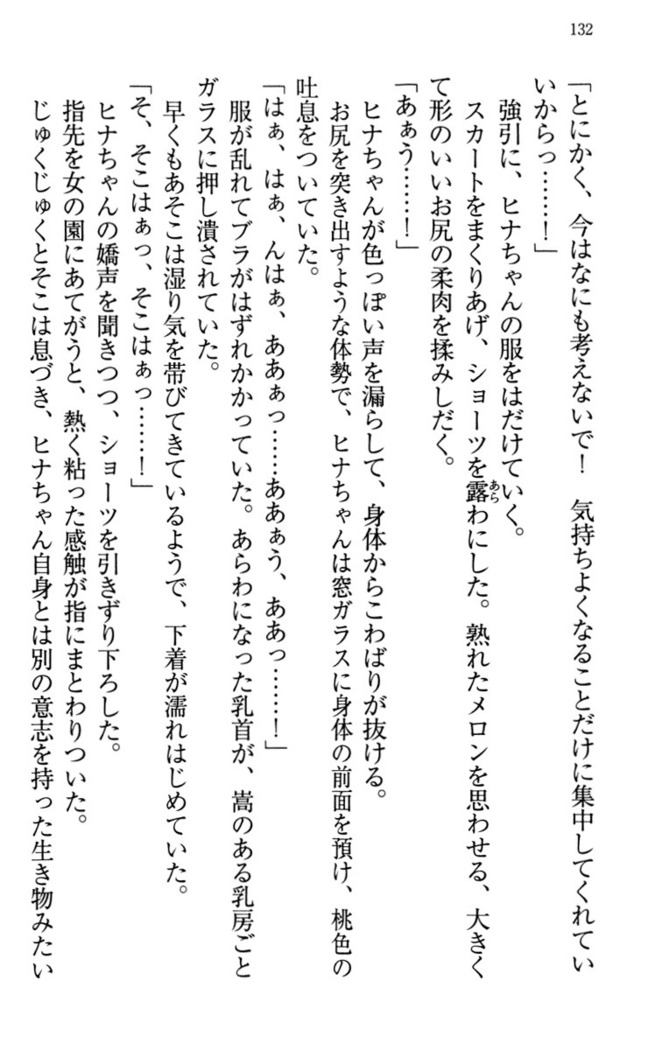 132
「とにかく、今はなにも考えないで！　気持ちよくなることだけに集中してくれてい
いからっ……！」
強引に、ヒナちゃんの服をはだけていく。
スカートをまくりあげ、ショーツを露わにした。熟れたメロンを思わせる、大きく
て形のいいお尻の柔肉を揉みしだく。
「あぁう……！」
ヒナちゃんが色っぽい声を漏らして、身体からこわばりが抜ける。
お尻を突き出すような体勢で、ヒナちゃんは窓ガラスに身体の前面を預け、桃色の
吐息をついていた。
「はぁ、はぁ、んはぁ、ああぁっ……ああぁう、ああっ……！」
服が乱れてブラがはずれかかっていた。あらわになった乳首が、嵩のある乳房ごと
ガラスに押し潰されていた。
早くもあそこは湿り気を帯びてきているようで、下着が濡れはじめていた。
「そ、そこはぁっ、そこはぁっ……！」
ヒナちゃんの嬌声を聞きつつ、ショーツを引きずり下ろした。
指先を女の園にあてがうと、熱く粘った感触が指にまとわりついた。
じゅくじゅくとそこは息づき、ヒナちゃん自身とは別の意志を持った生き物みたい